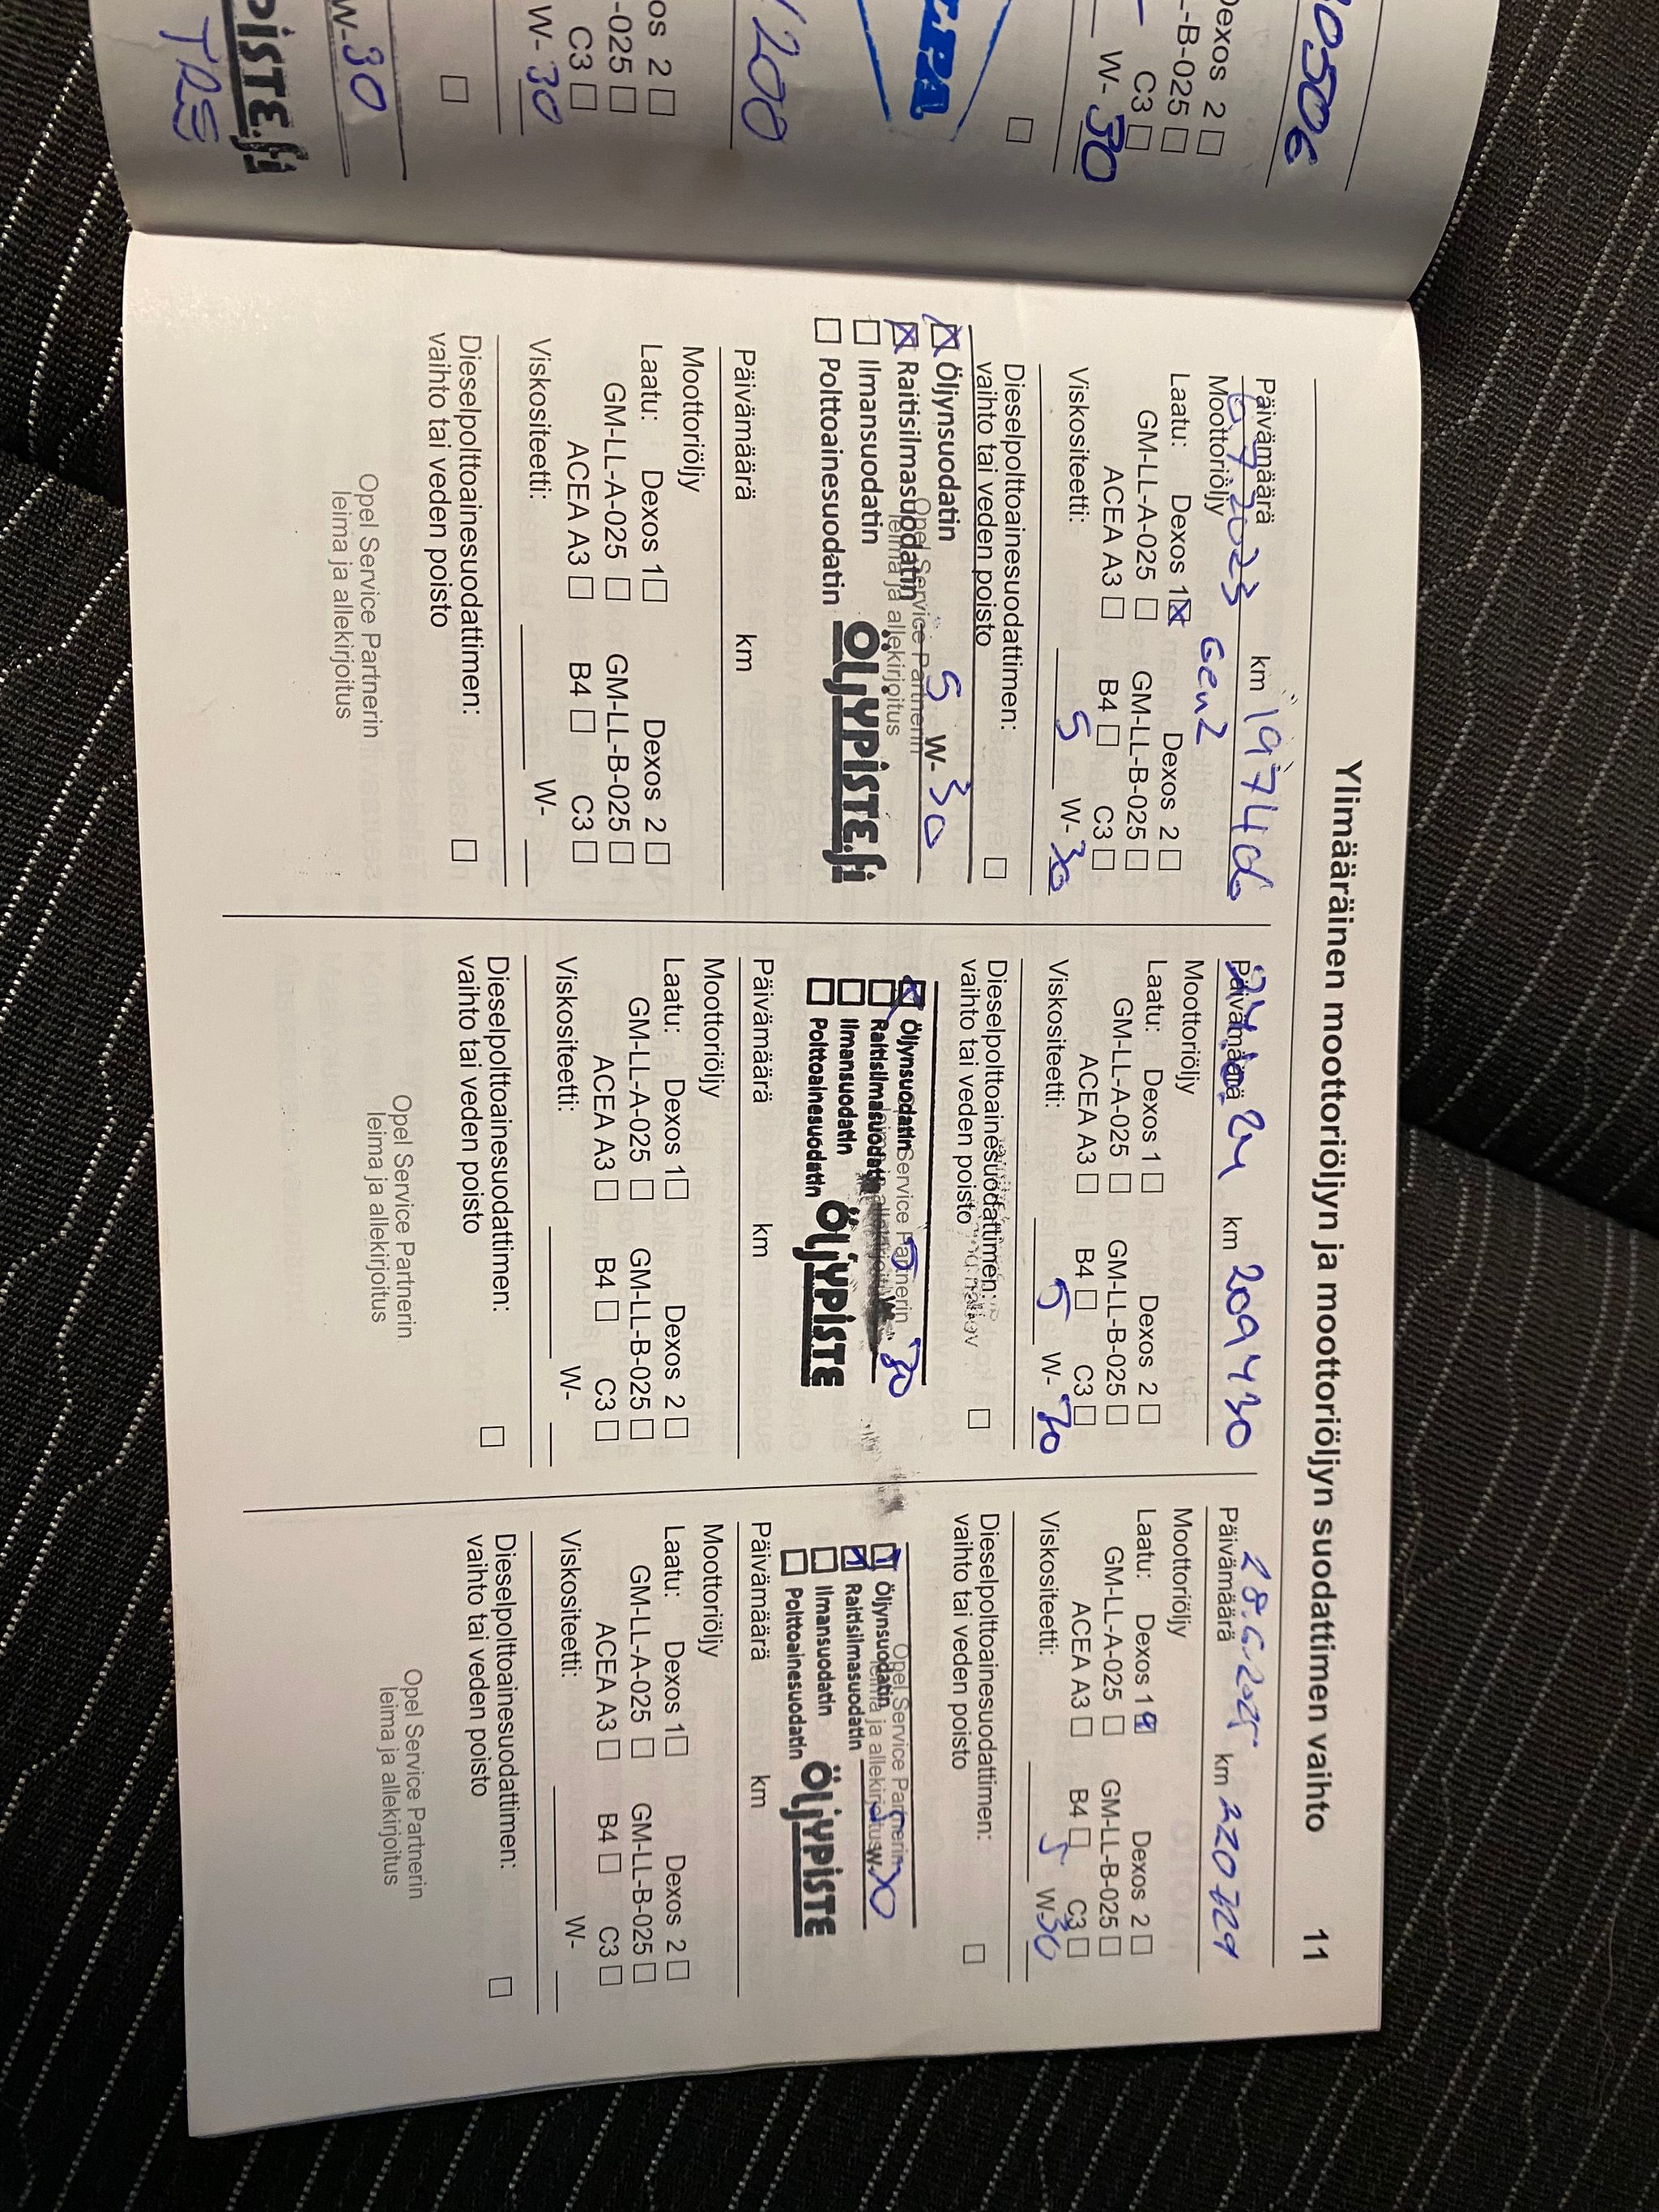 0506
Dexos 2
L-B-025
C3
W- 30
T.PA.
200
os 2
-025
C3
W- 30
W-30
PISTE.fi
TRE
Ylimääräinen moottoriöljyn ja moottoriöljyn suodattimen vaihto 11
Päivämäärä km
Moottoriöljy Gen2
Laatu: Dexos 1 Dexos 2
GM-LL-A-025 GM-LL-B-025
ACEA A3 B4 C3
Viskositeetti: 5 W- 30
Dieselpolttoainesuodattimen:
vaihto tai veden poisto
Öljynsuodatin 5 W- 30
Raitisilmasuodatin
Ilmansuodatin
Polttoainesuodatin ÖLJYPISTE.fi
Opel Service Partnerin
leima ja allekirjoitus
Päivämäärä km
Moottoriöljy
Laatu: Dexos 1 Dexos 2
GM-LL-A-025 GM-LL-B-025
ACEA A3 B4 C3
Viskositeetti: W-
Dieselpolttoainesuodattimen:
vaihto tai veden poisto
Opel Service Partnerin
leima ja allekirjoitus
Päivämäärä 24 km 209430
Moottoriöljy
Laatu: Dexos 1 Dexos 2
GM-LL-A-025 GM-LL-B-025
ACEA A3 B4 C3
Viskositeetti: 5 W- 30
Dieselpolttoainesuodattimen:
vaihto tai veden poisto
Öljynsuodatin 5 W- 30
Raitisilmasuodatin
Ilmansuodatin
Polttoainesuodatin ÖLJYPISTE
Service Partnerin
allekirjoitus
Päivämäärä km
Moottoriöljy
Laatu: Dexos 1 Dexos 2
GM-LL-A-025 GM-LL-B-025
ACEA A3 B4 C3
Viskositeetti: W-
Dieselpolttoainesuodattimen:
vaihto tai veden poisto
Opel Service Partnerin
leima ja allekirjoitus
Päivämäärä 28.6.2025 km 220729
Moottoriöljy
Laatu: Dexos 1 Dexos 2
GM-LL-A-025 GM-LL-B-025
ACEA A3 B4 C3
Viskositeetti: 5 W- 30
Dieselpolttoainesuodattimen:
vaihto tai veden poisto
Öljynsuodatin 5 W- 30
Raitisilmasuodatin
Ilmansuodatin
Polttoainesuodatin ÖLJYPISTE
Opel Service Partnerin
leima ja allekirjoitus
Päivämäärä km
Moottoriöljy
Laatu: Dexos 1 Dexos 2
GM-LL-A-025 GM-LL-B-025
ACEA A3 B4 C3
Viskositeetti: W-
Dieselpolttoainesuodattimen:
vaihto tai veden poisto
Opel Service Partnerin
leima ja allekirjoitus